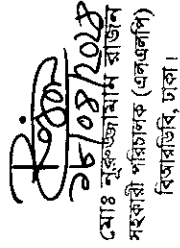 ২৮/০৪/২০২৪
মোঃ নূরুজ্জামান রাজন
সহকারী পরিচালক (এনএলপি)
বিআরডিবি, ঢাকা।